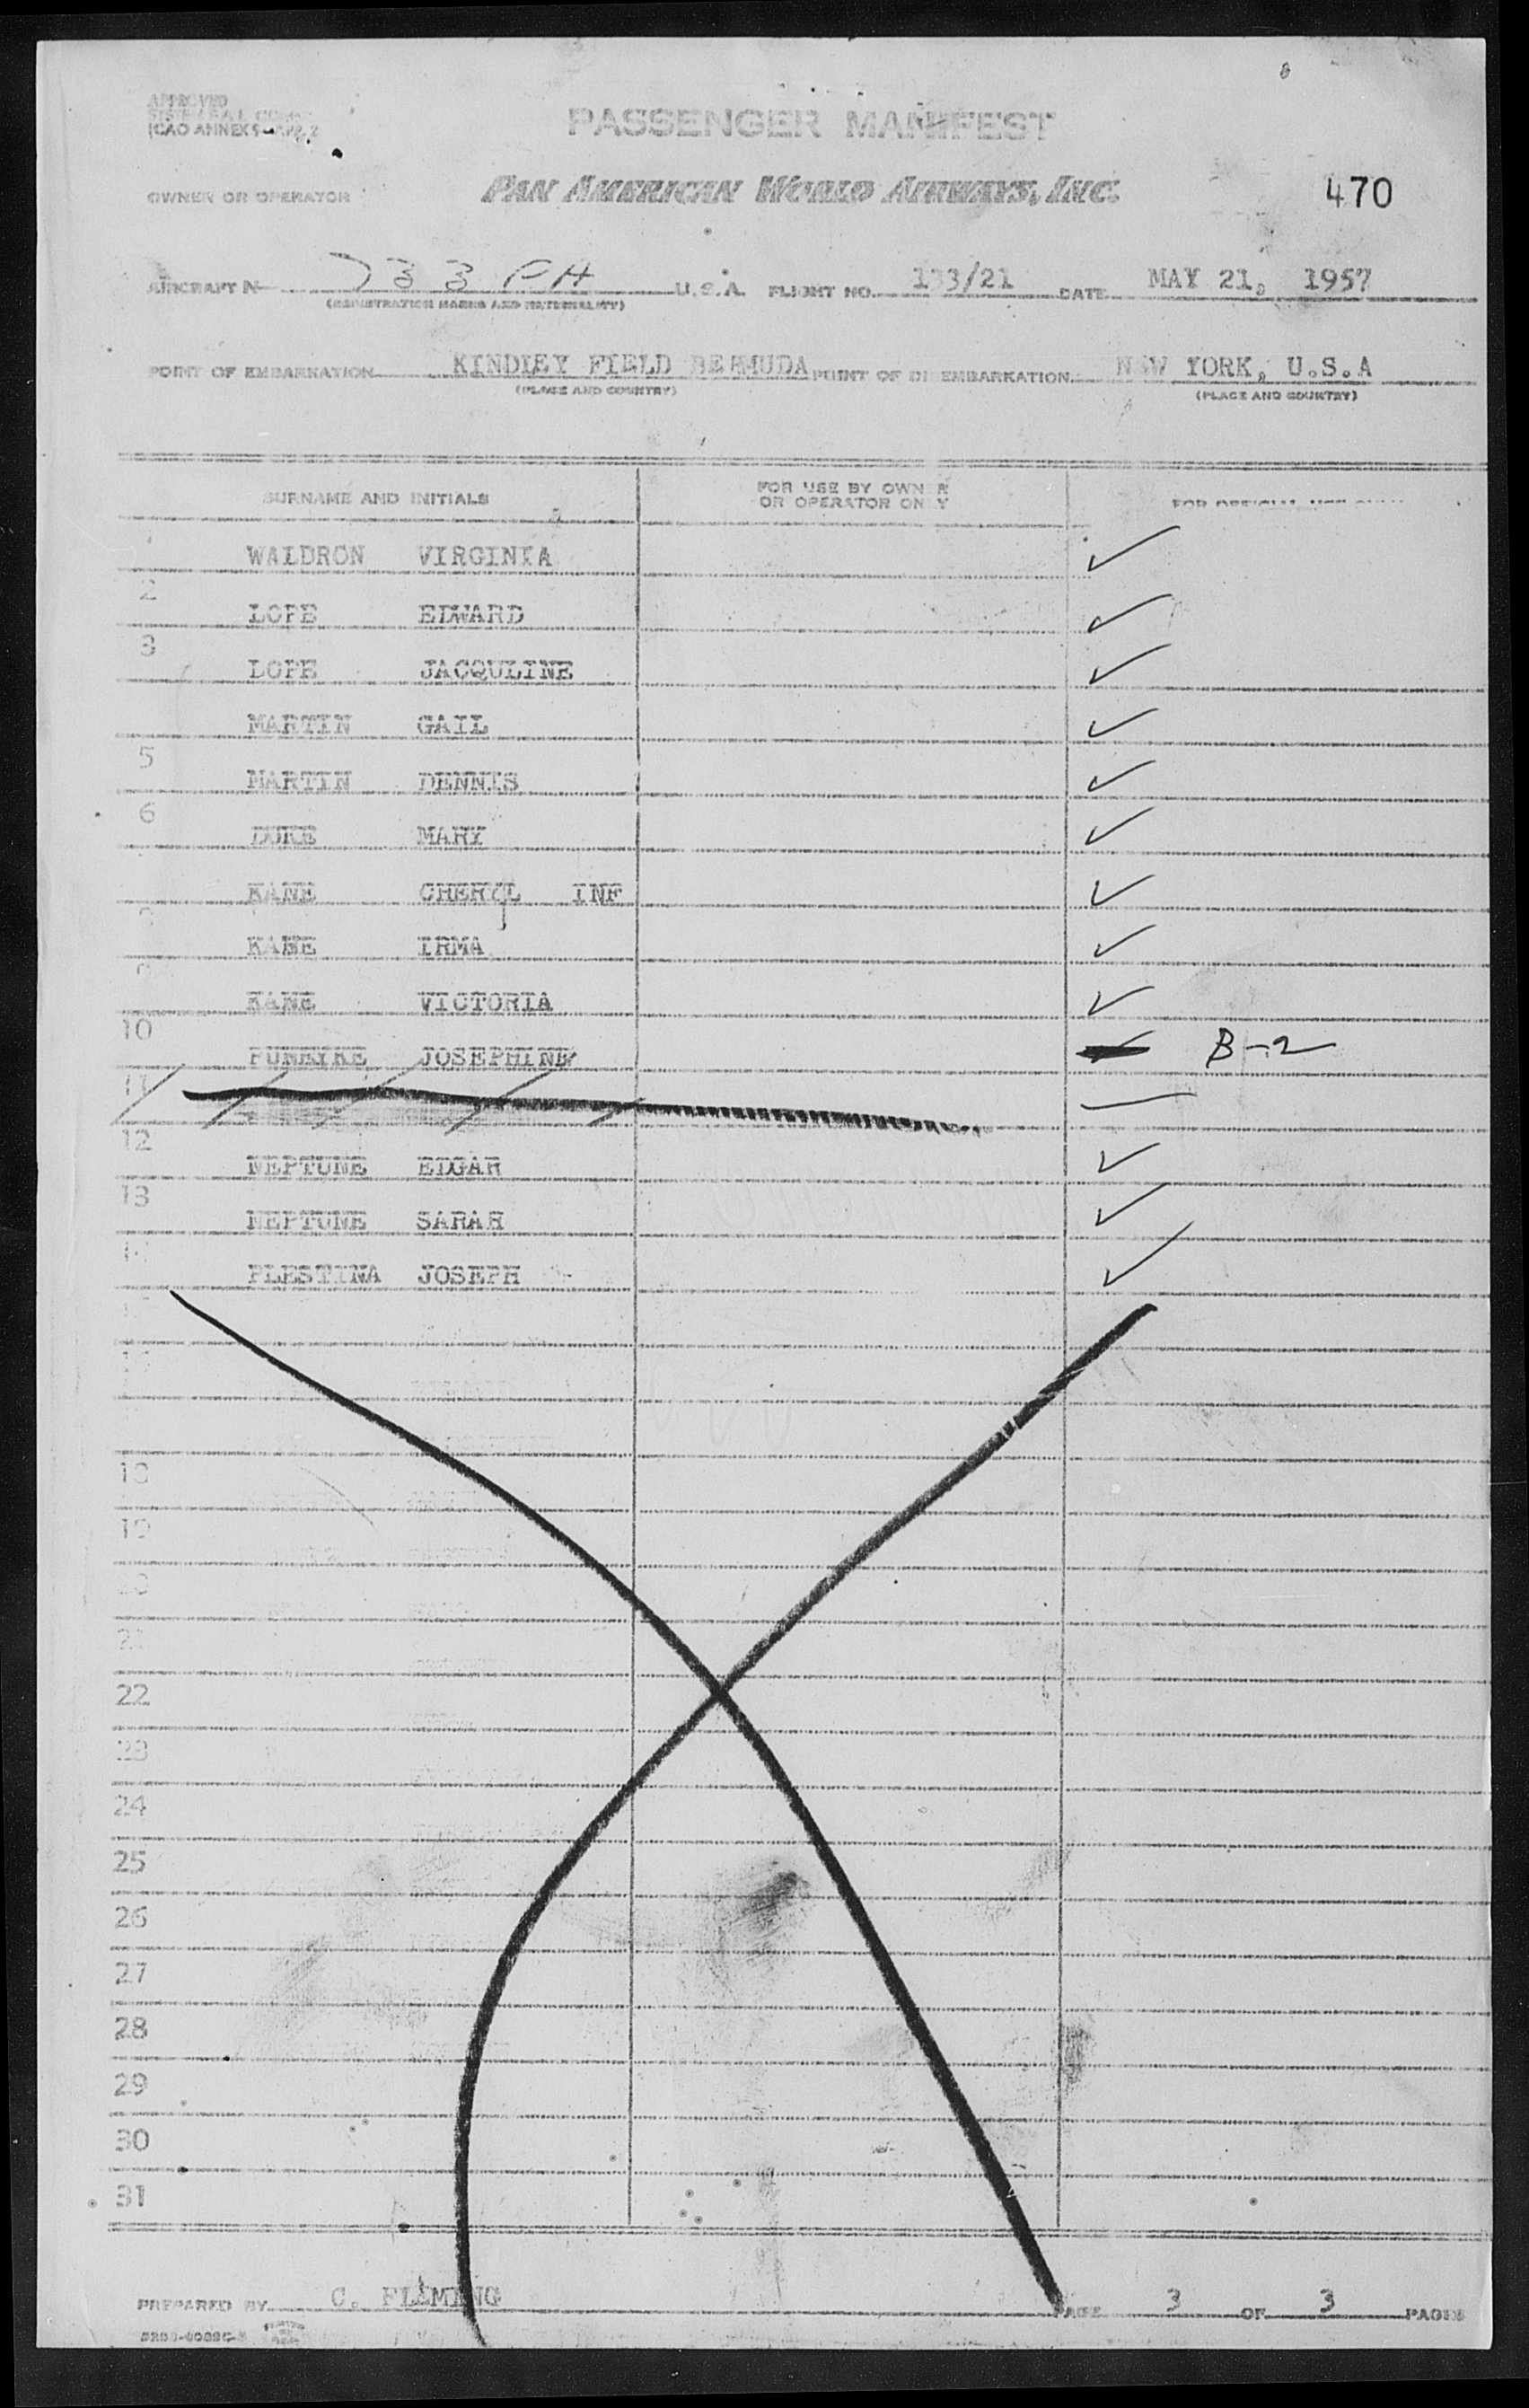 APPROVED
(CAO ANNEX 9—APP. 2
PASSENGER MANIFEST
OWNER OR OPERATOR
PAN AMERICAN WORLD AIRWAYS, INC.
470
AIRCRAFT N 733 PH U.S.A. FLIGHT NO. 133/21 DATE MAY 21, 1957
(REGISTRATION MARKS AND NATIONALITY)
POINT OF EMBARKATION KINDLEY FIELD BERMUDA POINT OF DISEMBARKATION NEW YORK, U.S.A
(PLACE AND COUNTRY) (PLACE AND COUNTRY)
SURNAME AND INITIALS
FOR USE BY OWNER
OR OPERATOR ONLY
FOR OFFICIAL USE ONLY
WALDRON VIRGINIA ✓
2
LOPE EDWARD ✓
3
LOPE JACQULINE ✓
MARTIN GAIL ✓
5
MARTIN DENNIS ✓
6
DUKE MARY ✓
KANE CHERYL INF ✓
KANE IRMA ✓
9
KANE VICTORIA ✓
10
JOSEPHINE B-2
11
12
NEPTUNE EDGAR ✓
13
NEPTUNE SARAH ✓
14
PLESTINA JOSEPH ✓
18
19
20
21
22
23
24
25
26
27
28
29
30
31
PREPARED BY C. FLEMING PAGE 3 OF 3 PAGES